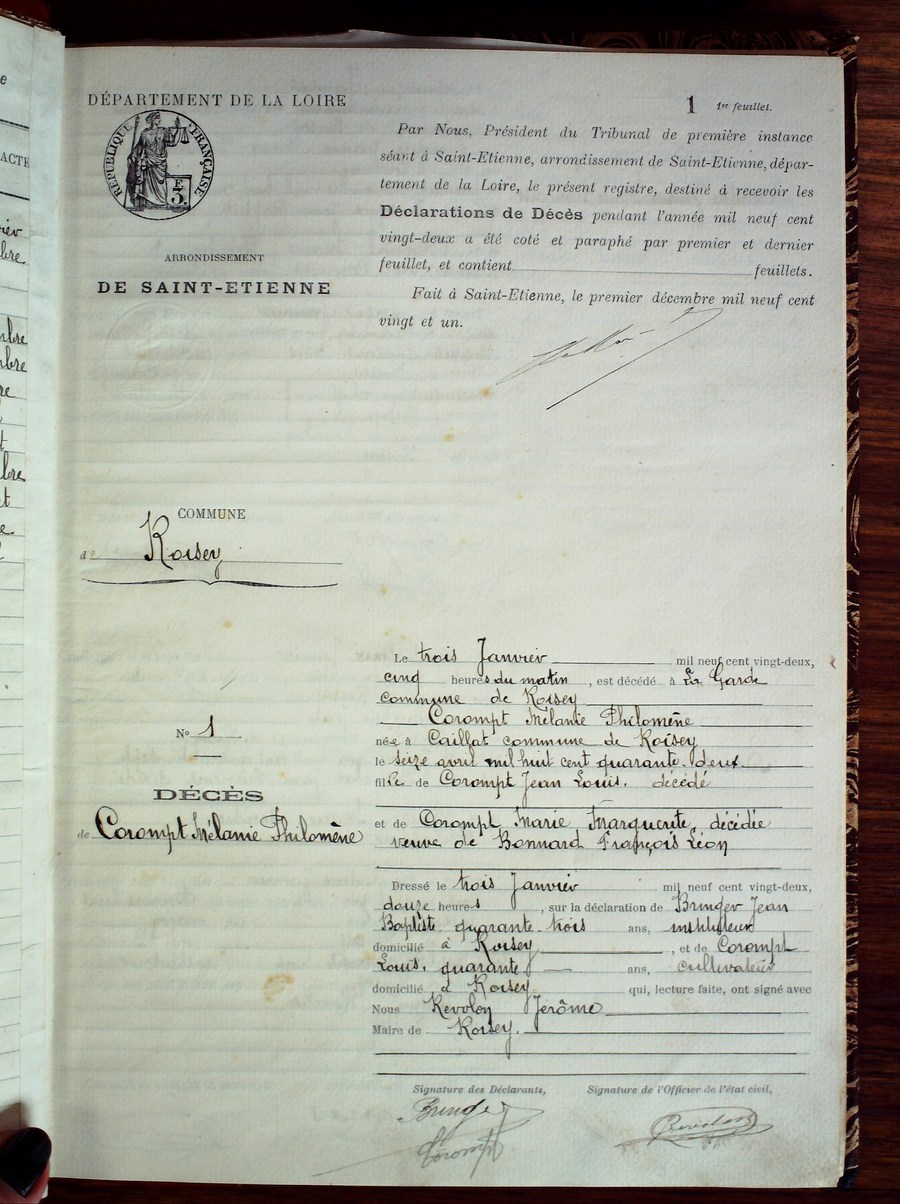 DÉPARTEMENT DE LA LOIRE
RÉPUBLIQUE FRANÇAISE
E
3.
ARRONDISSEMENT
DE SAINT-ETIENNE
1 1er feuillet.
Par Nous, Président du Tribunal de première instance
séant à Saint-Etienne, arrondissement de Saint-Etienne, dépar-
tement de la Loire, le présent registre, destiné à recevoir les
Déclarations de Décès pendant l'année mil neuf cent
vingt-deux a été coté et paraphé par premier et dernier
feuillet, et contient feuillets.
Fait à Saint-Etienne, le premier décembre mil neuf cent
vingt et un.
COMMUNE
de Roisey
No 1
DÉCÈS
de Corompt Mélanie Philomène
Le trois Janvier mil neuf cent vingt-deux,
cinq heures du matin, est décédé à La Garde
commune de Roisey
Corompt Mélanie Philomène
née à Caillat commune de Roisey
le seize avril mil huit cent quarante-deux
fille de Corompt Jean Louis, décédé
et de Corompt Marie Marguerite, décédée
veuve de Bonnard François Léon
Dressé le trois Janvier mil neuf cent vingt-deux,
douze heures, sur la déclaration de Bringer Jean
Baptiste quarante-trois ans, instituteur
domicilié à Roisey, et de Corompt
Louis, quarante ans, cultivateur
domicilié à Roisey qui, lecture faite, ont signé avec
Nous Revolon Jérôme
Maire de Roisey.
Signature des Déclarants, Signature de l'Officier de l'état civil,
Bringer
Corompt
Revolon